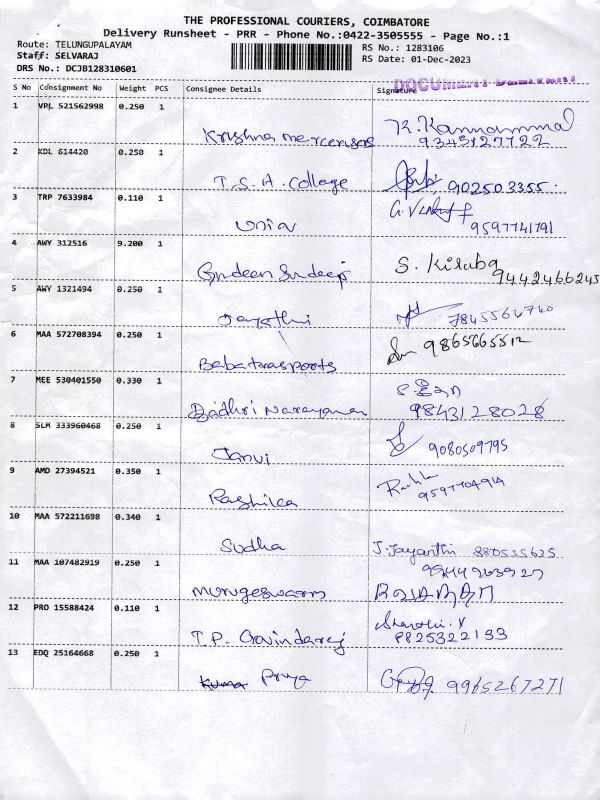 THE PROFESSIONAL COURIERS, COIMBATORE
Delivery Runsheet - PRR - Phone No.:0422-3505555 - Page No.:1
Route: TELUNGUPALAYAM
Staff: SELVARAJ
DRS No.: DCJB128310601
RS No.: 1283106
RS Date: 01-Dec-2023
DOCUMENT DELIVERY
S No Consignment No Weight PCS Consignee Details Signature
1 VPL 521562998 0.250 1
Krishna K. Kannammal
9345127722
2 KDL 614420 0.250 1
T.S.A. College 902503355.
3 TRP 7633984 0.110 1
G. Venky
Univ 9597741791
4 AWY 312516 9.200 1
S. Kiruba
9442466245
5 AWY 1321494 0.250 1
Jayathi 7845564740
6 MAA 572708394 0.250 1
9865665512
Baba trasports
7 MEE 530401550 0.330 1
Badhri Narayanan 9843128028
8 SLM 333960468 0.250 1
Janvi 9080509795
9 AMD 27394521 0.350 1
Rashika 9597704914
10 MAA 572211698 0.340 1
Sudha J. Jayanthi 880535635
11 MAA 107482919 0.250 1
9944963927
Murugeswarn
12 PRO 15588424 0.110 1
T.P. Govindaraj 9825322133
13 EDQ 25164668 0.250 1
Kuma Priya 9965267271